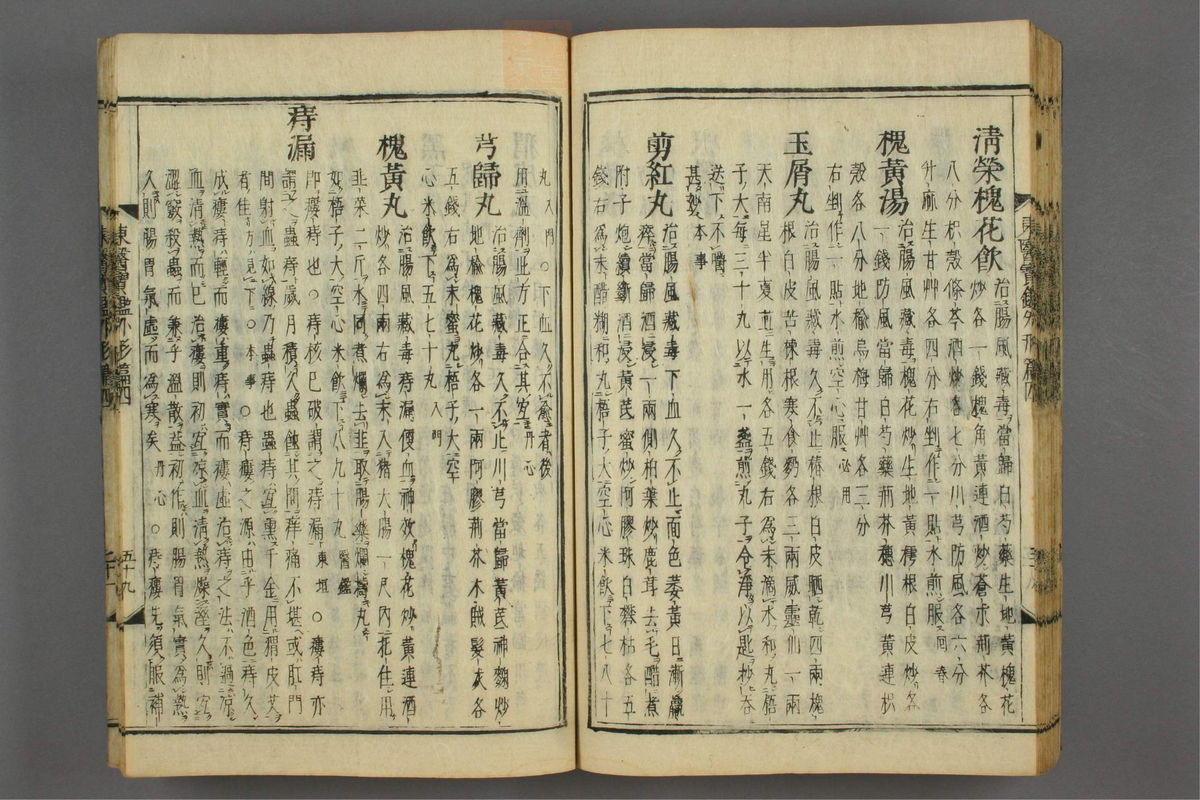 淸榮槐花飮 治腸風藏毒當歸白芍藥生地黃槐花
八分枳殼條芩酒炒各七分川芎防風各六分
升麻生甘艸各四分右剉作一貼水煎服回春
槐黃湯 治腸風藏毒槐花炒生地黃樗根白皮炒各
一錢防風當歸白芍藥荊芥穗川芎黃連枳
殼各八分地榆烏梅甘艸各三分
右剉作一貼水煎空心服必用
玉屑丸 治腸風藏毒久不止椿根白皮晒乾四兩槐
根白皮苦楝根寒食麪各三兩威靈仙一兩
天南星半夏並生用各五錢右爲末滴水和丸梧
子大每三十丸以水一盞煎丸子令浮以匙抄吞
送下不嚼
甚妙本事
剪紅丸 治腸風藏毒下血久不止面色萎黃日漸羸
瘠當歸酒浸一兩側柏葉炒鹿茸去毛醋煮
附子炮續斷酒浸黃芪蜜炒阿膠珠白礬枯各五
錢右爲末醋糊和丸梧子大空心米飮下七八十
丸入門○下血久不愈者後
用溫劑止方正合其宜丹心
芎歸丸 治腸風藏毒久不止川芎當歸黃芪神麴炒
地榆槐花炒各一兩阿膠荊芥木賊髮灰各
五錢右爲末蜜丸梧子大空
心米飮下五七十丸入門
槐黃丸 治腸風藏毒痔漏便血神效槐花炒黃連酒
炒各四兩右爲末入猪大腸一尺內扎住用
韭菜二斤水同煮爛去韭取腸藥爛擣丸
如梧子大空心米飮下八九十丸醫鑑
痔漏
卽瘻痔也○痔核已破謂之痔漏東垣○瘻痔亦
謂之蟲痔歲月積久蟲蝕其間痒痛不堪或肛門
間射血如線乃蟲痔也蟲痔宜熏千金用猬皮艾
者佳方見下○本事○痔瘻之源由乎酒色痔久
成瘻痔輕而瘻重痔實而瘻虛治痔之法不過凉
血淸熱而已治瘻則初宜凉血淸熱燥濕久則宜
澁竅殺蟲而兼乎溫散盖初作則腸胃氣實爲熱
久則腸胃氣虛而爲寒矣丹心○痔瘻先須服補
東醫寶鑑外形篇四
五十九